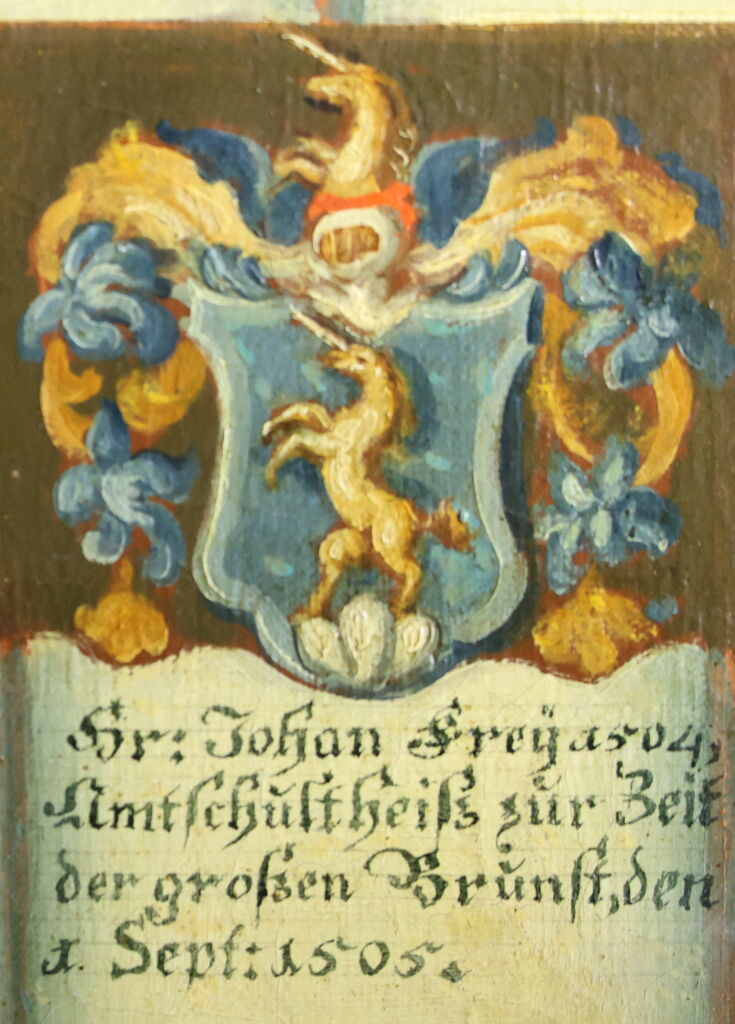 Hr: Johan Freÿ 1504,
Amtschultheiß zur Zeit
der großen Brunst, den
1. Sept: 1505.